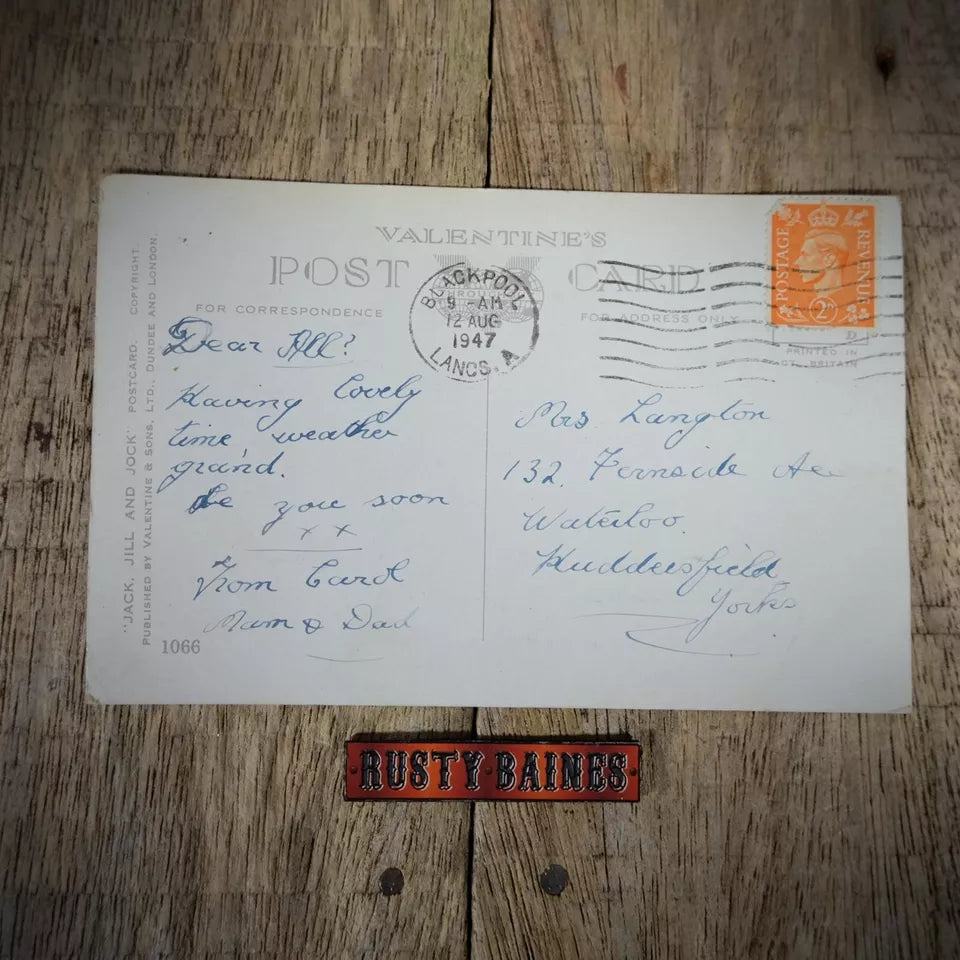 VALENTINE'S
POST CARD
FOR CORRESPONDENCE
FOR ADDRESS ONLY
BLACKPOOL
9 - AM
12 AUG
1947
LANCS. A
POSTAGE REVENUE
2D
PRINTED IN
GT. BRITAIN
"JACK, JILL AND JOCK" POSTCARD. COPYRIGHT.
PUBLISHED BY VALENTINE & SONS, LTD., DUNDEE AND LONDON.
1066
Dear All?
Having lovely
time weather
grand.
Se you soon
x x
From Carol
Mam & Dad
Mrs Langton
132, Fernside Ave
Waterloo.
Huddersfield
Yorks
RUSTY BAINES